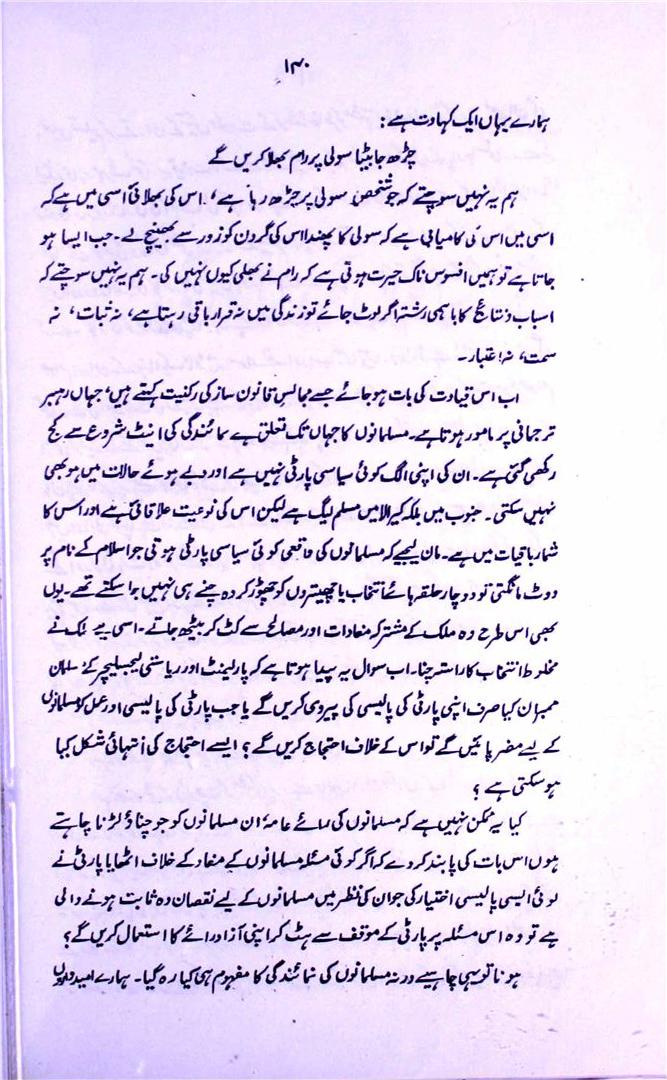 ۱۴۰
ہمارے یہاں ایک کہاوت ہے:
چڑھ جا بیٹا سولی پر رام بھلا کریں گے
ہم یہ نہیں سوچتے کہ جو شخص سولی پر چڑھ رہا ہے، اس کی بھلائی اسی میں ہے کہ
اسی میں اس کی کامیابی ہے کہ سولی کا پھندا اس کی گردن کو زور سے بھینچ لے۔ جب ایسا ہو
جاتا ہے تو ہمیں افسوس ناک حیرت ہوتی ہے کہ رام نے بھلی کیوں نہیں کی۔ ہم یہ نہیں سوچتے کہ
اسباب و نتائج کا باہمی رشتہ اگر ٹوٹ جائے تو زندگی میں نہ قرار باقی رہتا ہے، نہ ثبات، نہ
سمت، نہ اعتبار۔
اب اس قیادت کی بات ہو جائے جسے مجالسِ قانون ساز کی رکنیت کہتے ہیں، جہاں رہبر
ترجمانی پر مامور ہوتا ہے۔ مسلمانوں کا جہاں تک تعلق ہے نمائندگی کی اینٹ شروع سے کج
رکھی گئی ہے۔ ان کی اپنی الگ کوئی سیاسی پارٹی نہیں ہے اور دیے ہوئے حالات میں ہو بھی
نہیں سکتی۔ جنوب میں بلکہ کیرالا میں مسلم لیگ ہے لیکن اس کی نوعیت علاقائی ہے اور اس کا
شمار باقیات میں ہے۔ مان لیجیے کہ مسلمانوں کی واقعی کوئی سیاسی پارٹی ہوتی جو اسلام کے نام پر
ووٹ مانگتی تو دو چار حلقہ ہائے انتخاب یا چھیتروں کو چھوڑ کر وہ جیت ہی نہیں سکتے تھے۔ یوں
بھی اس طرح وہ ملک کے مشترکہ مفادات اور مصالح سے کٹ کر بیٹھ جاتے۔ اسی لیے ملک نے
مخلوط انتخاب کا راستہ چنا۔ اب سوال یہ پیدا ہوتا ہے کہ پارلیمنٹ اور ریاستی لیجسلیچر کے مسلمان
ممبران کیا صرف اپنی پارٹی کی پالیسی کی پیروی کریں گے یا جب پارٹی کی پالیسی اور عمل کو مسلمانوں
کے لیے مضر پائیں گے تو اس کے خلاف احتجاج کریں گے؟ ایسے احتجاج کی انتہائی شکل کیا
ہو سکتی ہے؟
کیا یہ ممکن نہیں ہے کہ مسلمانوں کی رائے عامہ ان مسلمانوں کو جو چناؤ لڑنا چاہتے
ہوں اس بات کی پابند کر دے کہ اگر کوئی مسئلہ مسلمانوں کے مفاد کے خلاف اٹھا یا پارٹی نے
کوئی ایسی پالیسی اختیار کی جو ان کی نظر میں مسلمانوں کے لیے نقصان دہ ثابت ہونے والی
ہے تو وہ اس مسئلہ پر پارٹی کے موقف سے ہٹ کر اپنی آزاد رائے کا استعمال کریں گے؟
ہونا تو یہی چاہیے ورنہ مسلمانوں کی نمائندگی کا مفہوم ہی کیا رہ گیا۔ ہمارے امیدواروں